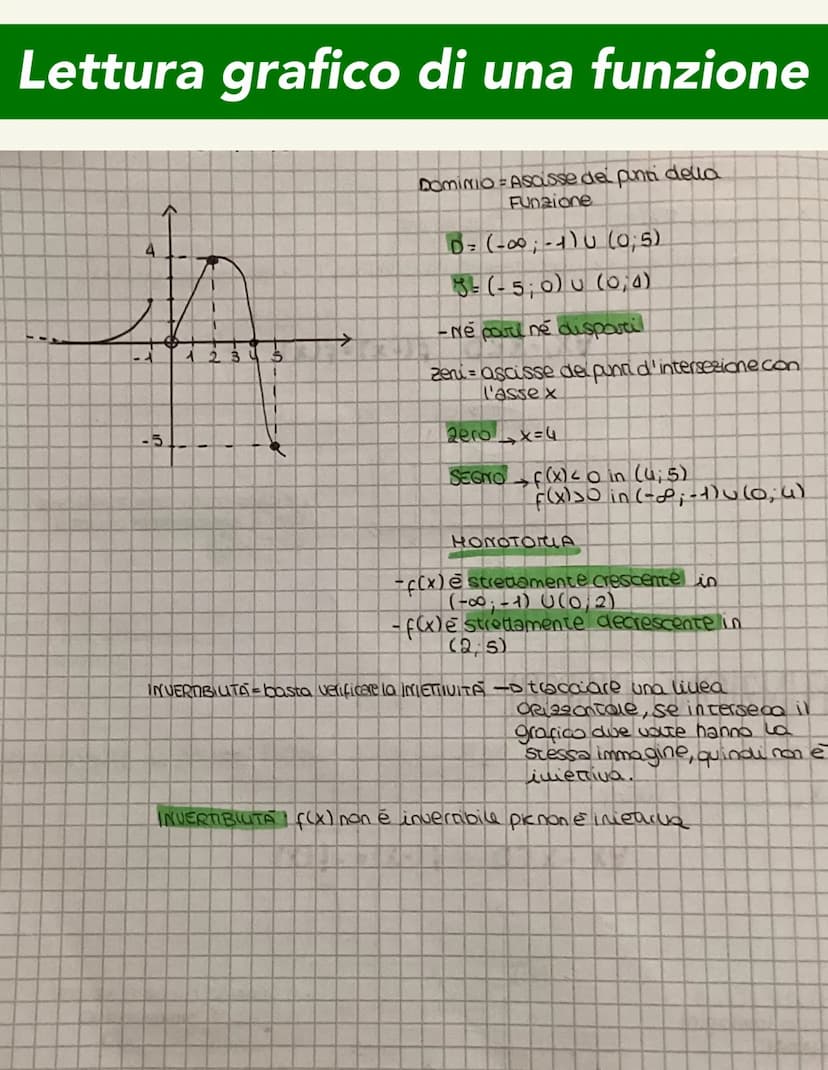 Lettura grafico di una funzione
Dominio = Ascisse dei punti della
Funzione
D = (-∞ ; -1) ∪ (0 ; 5)
= (-5 ; 0) ∪ (0 ; 4)
- Né pari né dispari
zeri = ascisse dei punti d'intersezione con
l'asse x
zero → x=4
SEGNO → f(x) < 0 in (4 ; 5)
f(x) > 0 in (-∞ ; -1) ∪ (0 ; 4)
MONOTONIA
- f(x) è strettamente crescente in
(-∞ ; -1) ∪ (0 ; 2)
- f(x) è strettamente decrescente in
(2 ; 5)
INVERTIBILITÀ = basta verificare la INIETTIVITÀ → tracciare una linea
orizzontale, se interseca il
grafico due volte hanno la
stessa immagine, quindi non è
iniettiva.
INVERTIBILITÀ : f(x) non è invertibile pk non è iniettiva
4
-1 1 2 3 4 5
-5